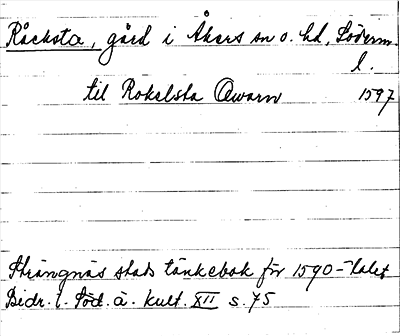 Råcksta, gård i Åkers sn o. hd, Söderm.
l.
til Rokelsta Qwarn 1597
Strängnäs stads tänkebok för 1590-talet
Bidr. t. Söd. ä. kult. XII s. 75